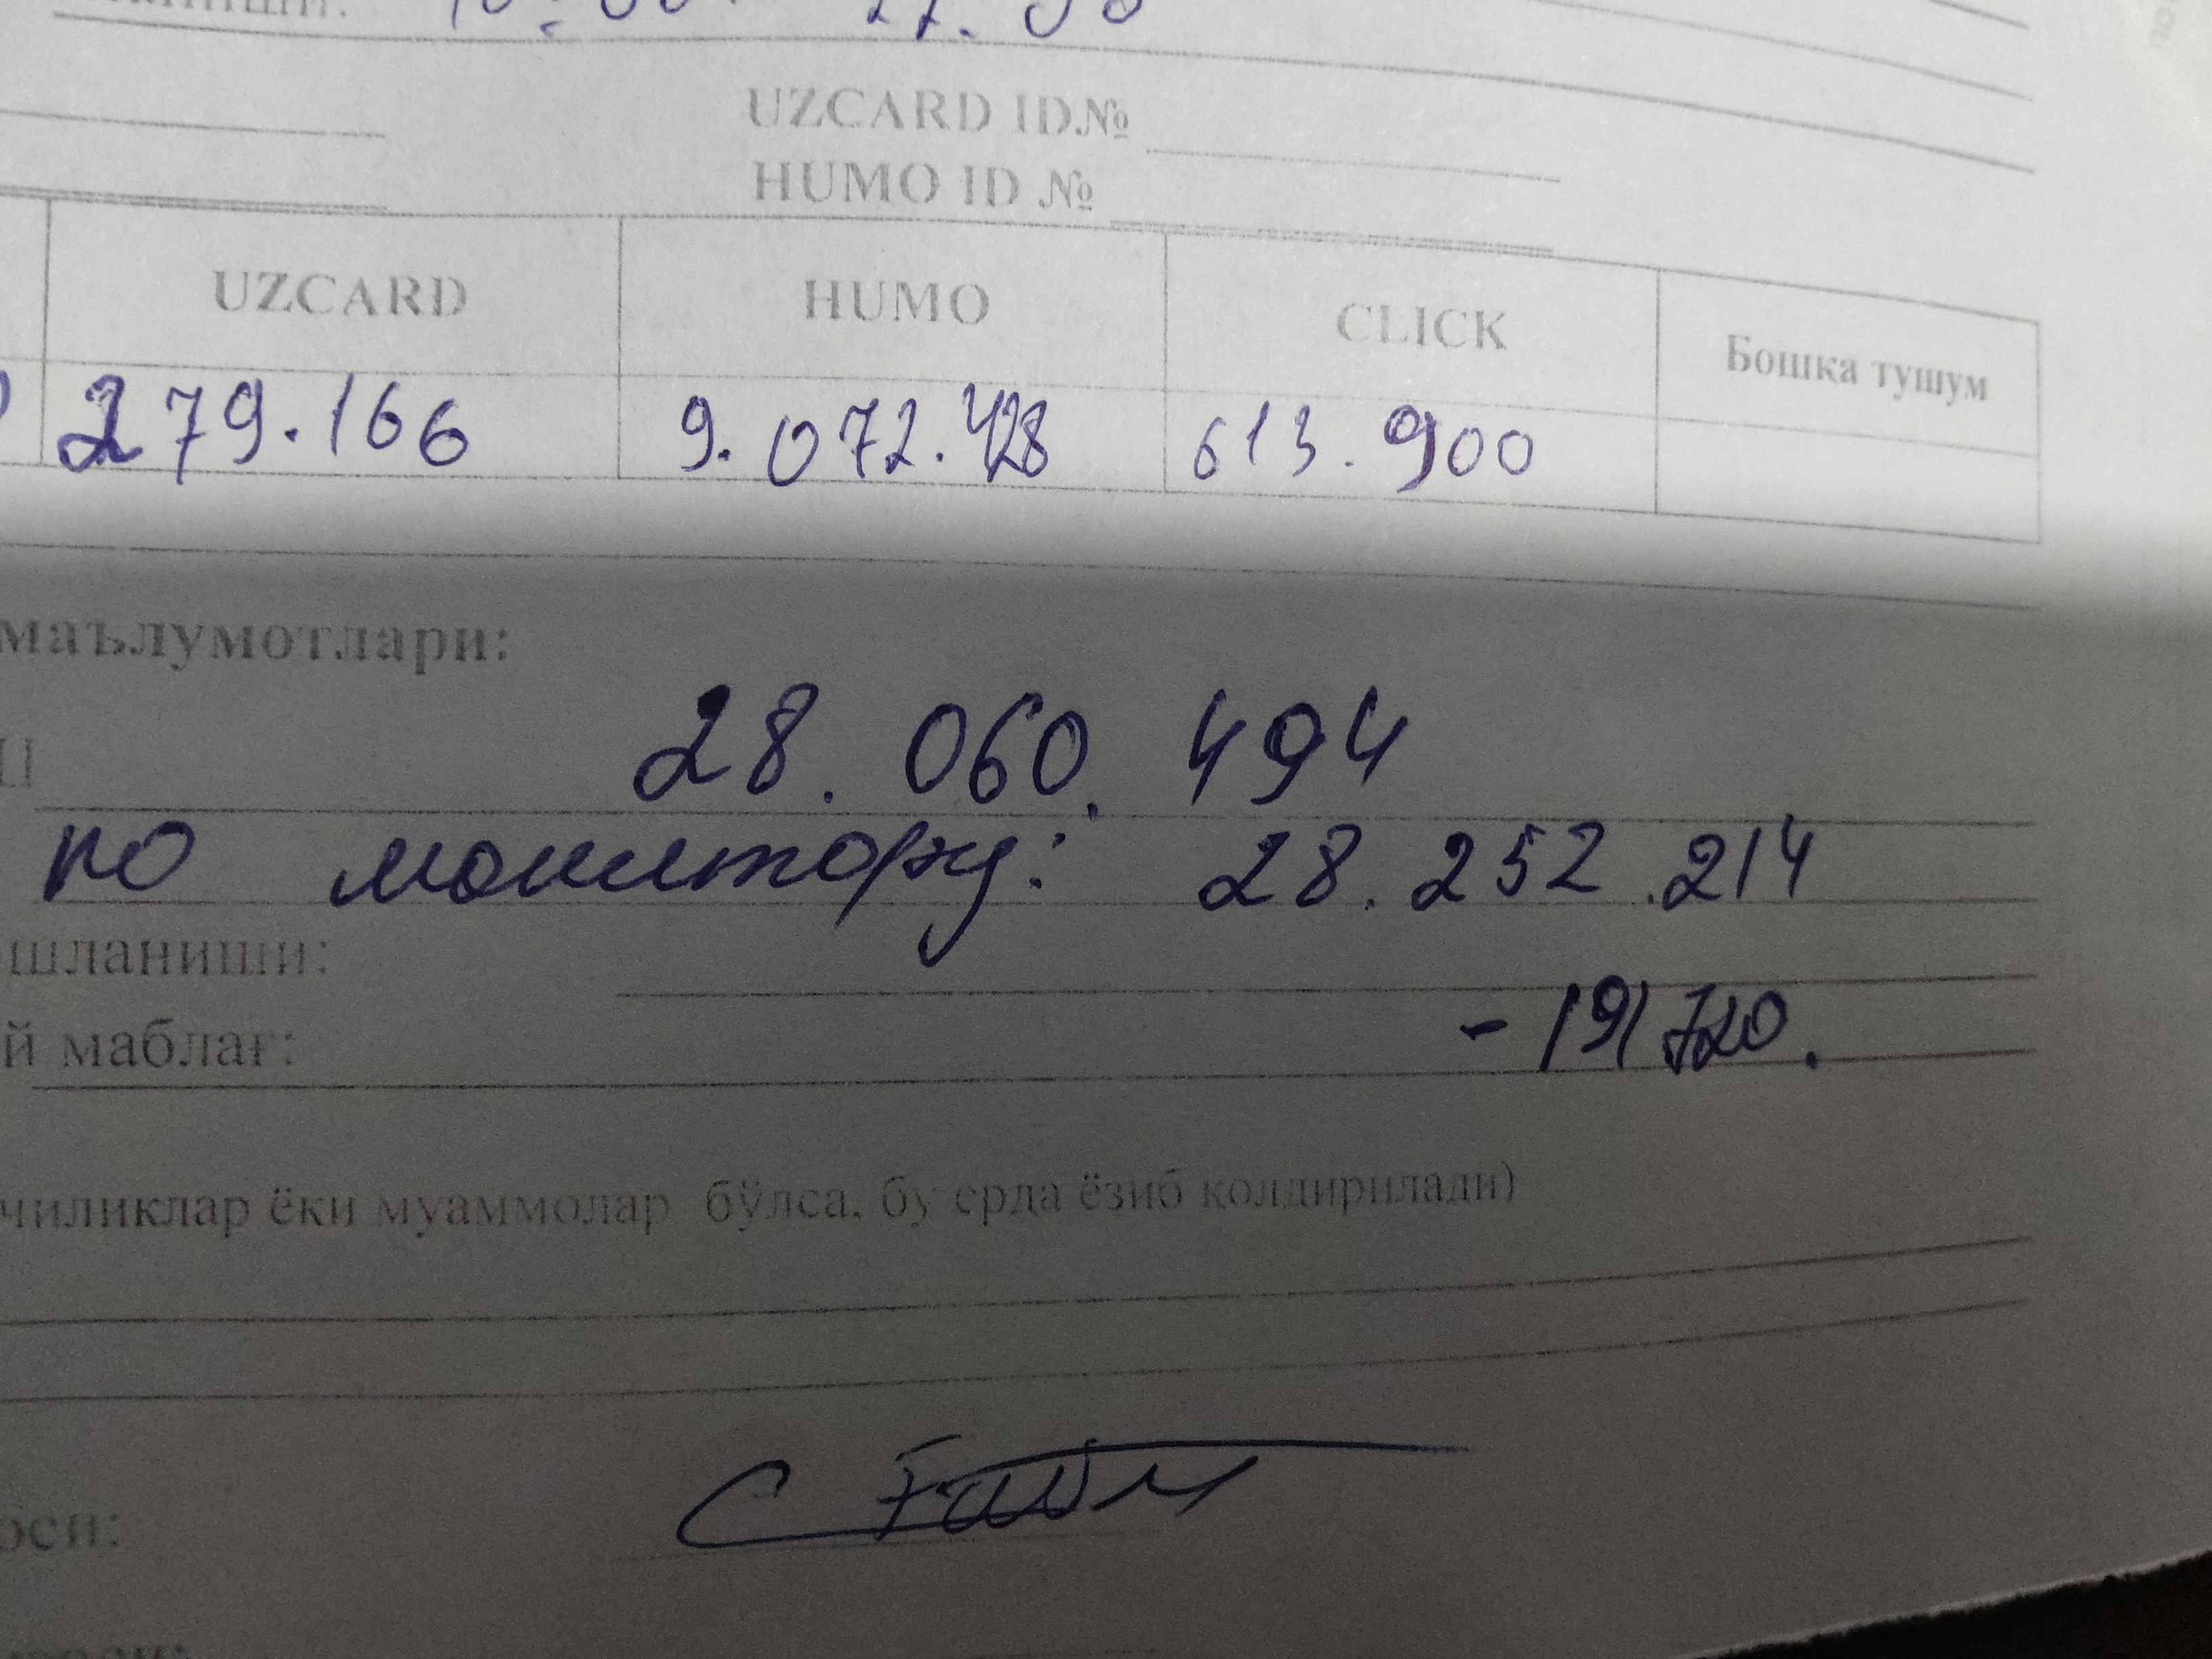 UZCARD ID.№
HUMO ID №
UZCARD HUMO CLICK Бошка тушум
279.166 9.072.428 613.900
маълумотлари:
28.060.494
по монитору: 28.252.214
шланиши:
й маблағ: -191720.
чиликлар ёки муаммолар бўлса, бу ерда ёзиб қолдирилади)
оси: